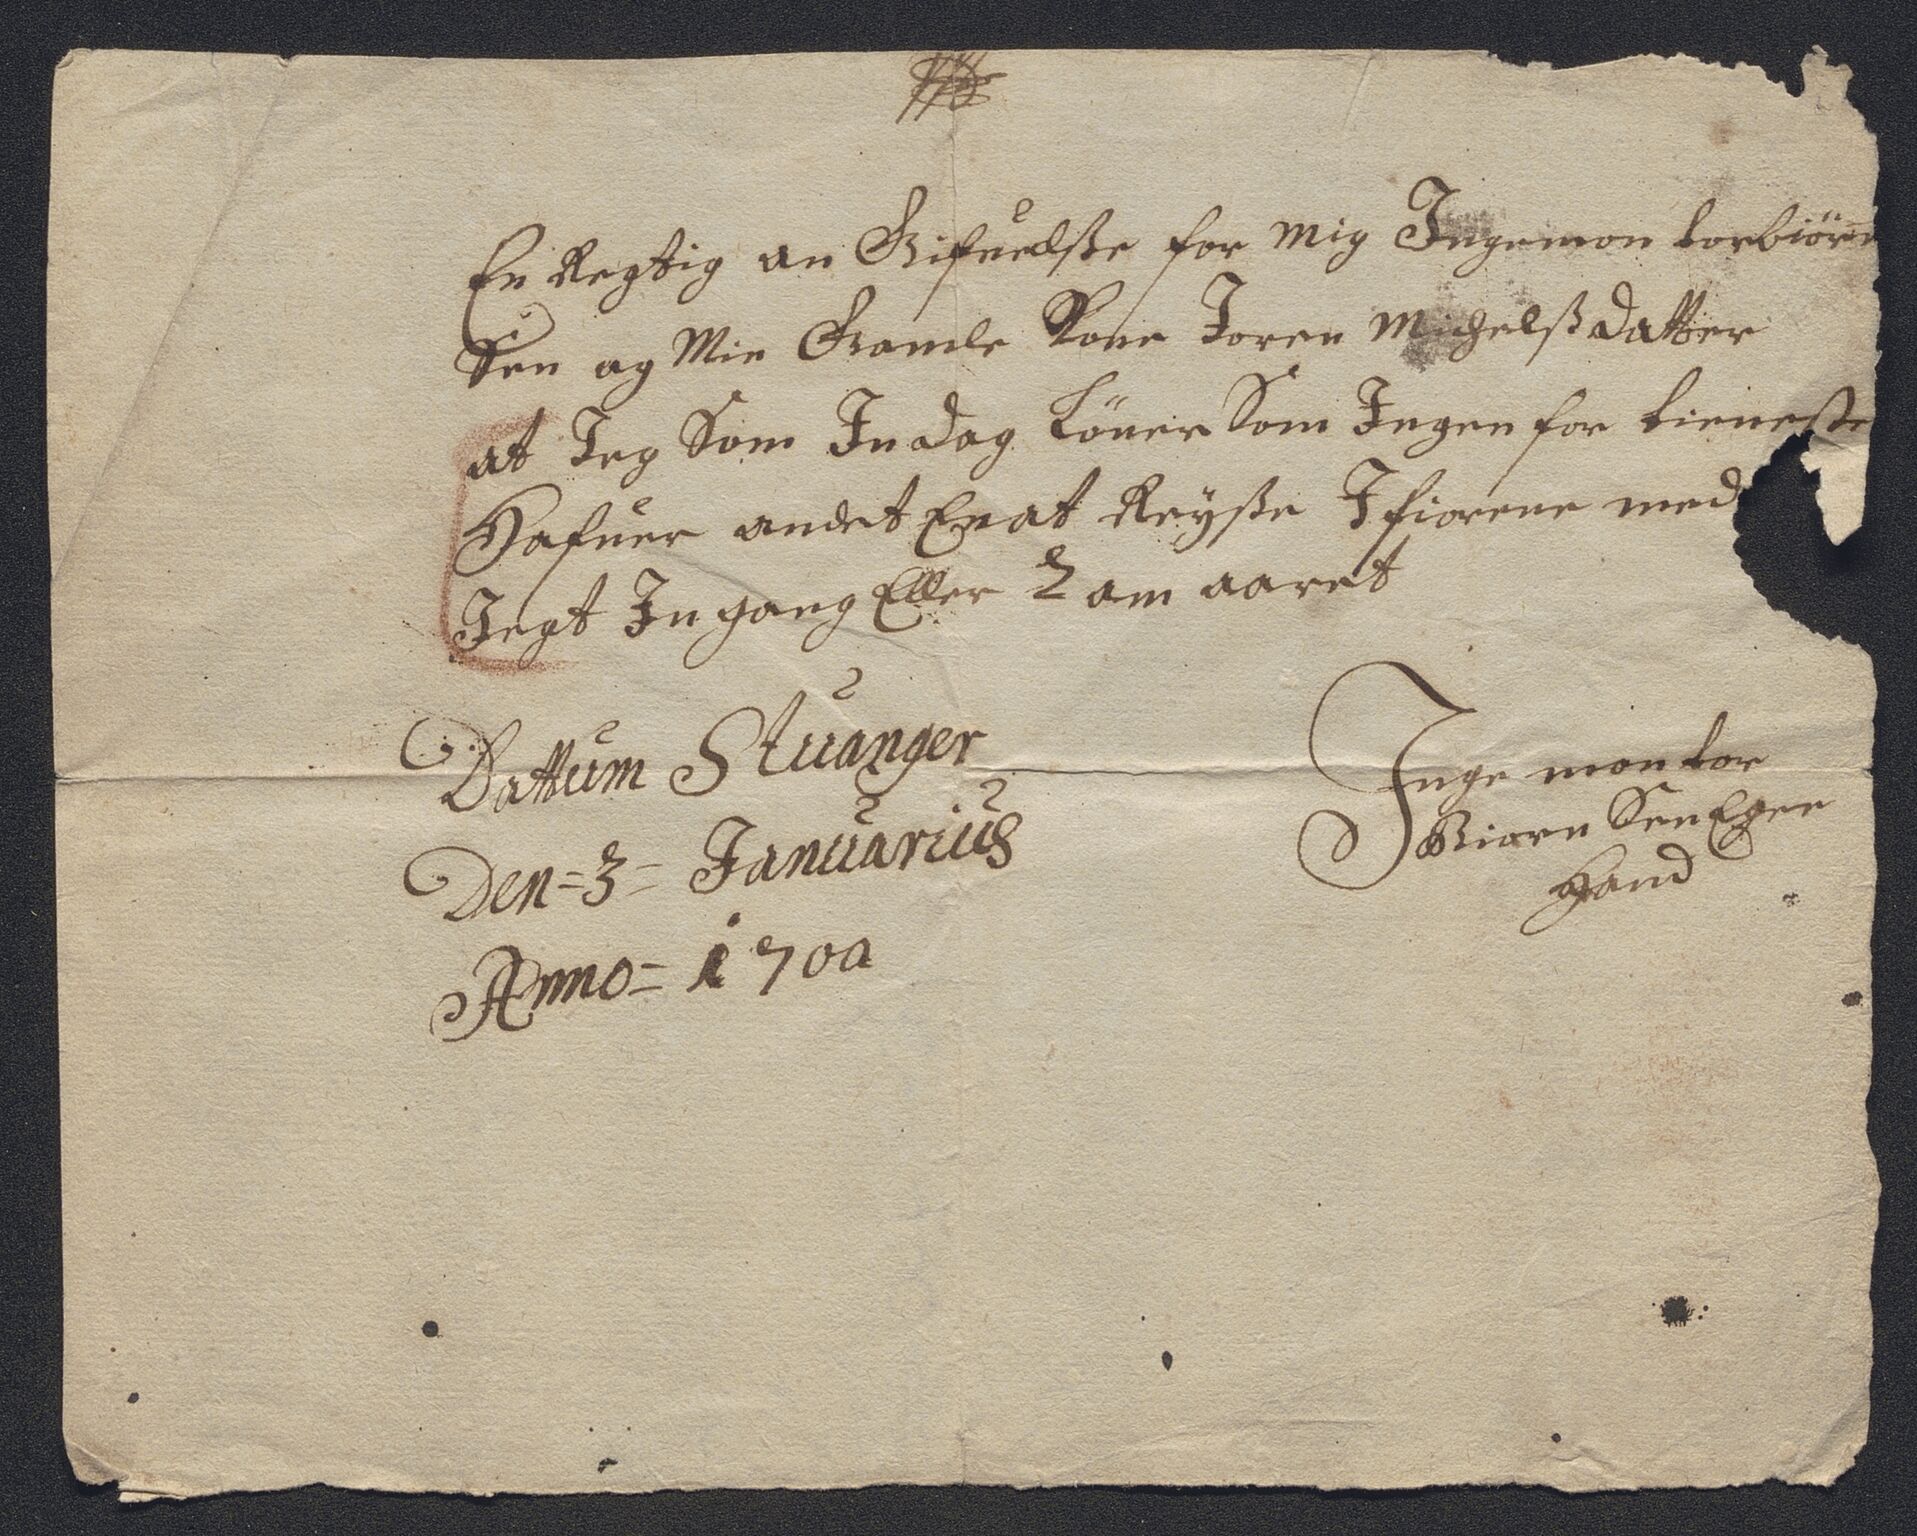 En Regtig an Gifuelsße for mig Ingemon torbiörn
Sen og Min Gamle Kone Joren Michelsß datter
at Jeg Som In dag Löner Som Ingen for tieneste
Hafuer andet En at Reysße I fiorene med
Jegt In gang Eller 2 om aaret
Dattum Stuanger
Den = 3 = Januarius
Anno = 1700
Inge mon tor
Biorn Sen Egen
Hand